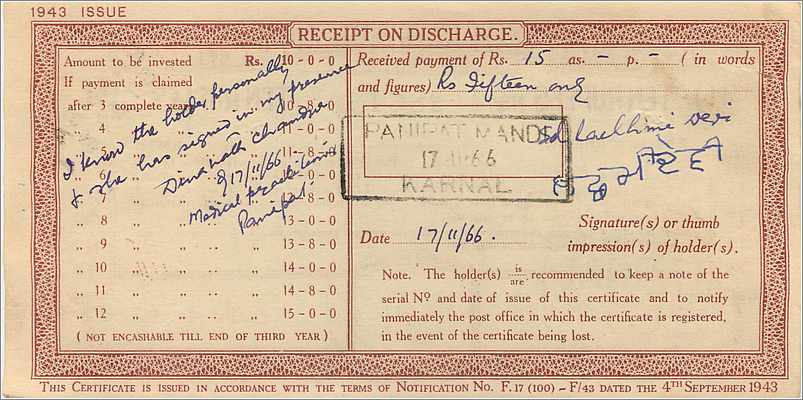 1943 ISSUE
RECEIPT ON DISCHARGE.
Amount to be invested Rs. 10-0-0
If payment is claimed
after 3 complete years 10-8-0
" 4 "
" 5 "
" 6 " 11-8-0
" 7 "
" 8 " .. " 13-0-0
" 9 " .. " 13-8-0
" 10 " .. " 14-0-0
" 11 " .. " 14-8-0
" 12 " .. " 15-0-0
( NOT ENCASHABLE TILL END OF THIRD YEAR )
I know the holder personally
& she has signed in my presence
Dina Nath Chandra
17/11/66
Medical Practitioner
Panipat.
Received payment of Rs. 15 as. - p. - ( in words
and figures) Rs Fifteen only
PANIPAT MANDI
17 11 66
KARNAL
Sd Lachhmi Devi
Date 17/11/66.
Signature(s) or thumb
impression(s) of holder(s).
Note. The holder(s) is/are recommended to keep a note of the
serial No and date of issue of this certificate and to notify
immediately the post office in which the certificate is registered,
in the event of the certificate being lost.
THIS CERTIFICATE IS ISSUED IN ACCORDANCE WITH THE TERMS OF NOTIFICATION NO. F. 17 (100) – F/43 DATED THE 4TH SEPTEMBER 1943